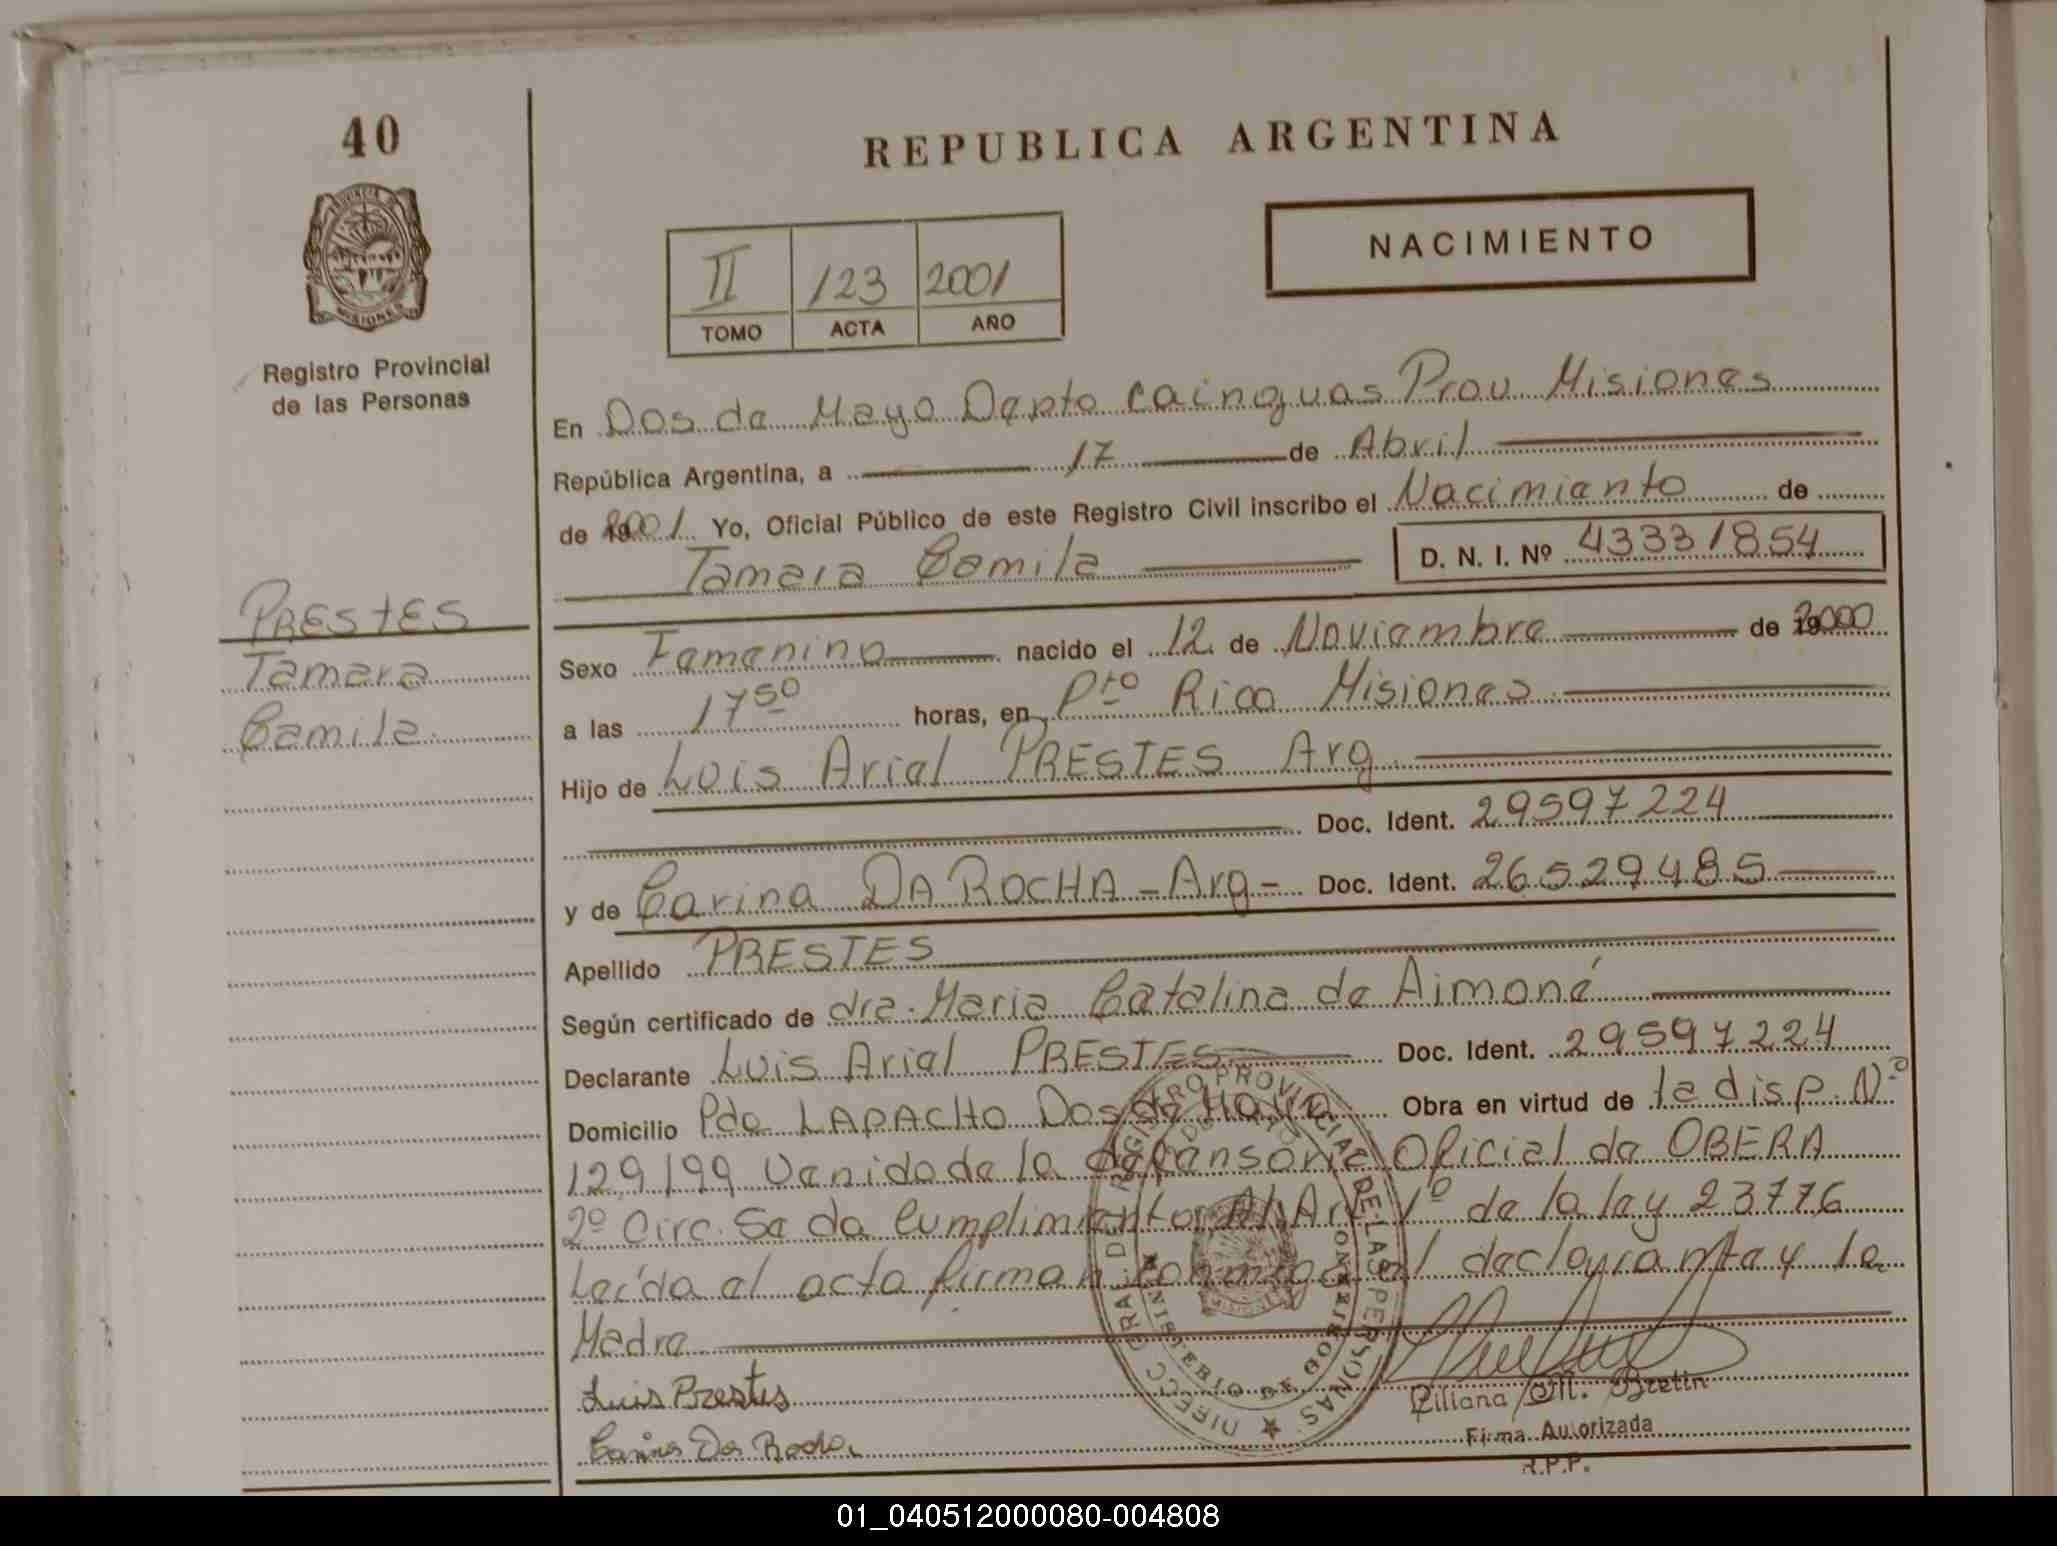 40
REPUBLICA ARGENTINA
NACIMIENTO
II 123 2001
TOMO ACTA AÑO
MISIONES
Registro Provincial
de las Personas
En Dos de Mayo Depto Cainguas Prov Misiones
República Argentina, a 17 de Abril
de 2001 Yo, Oficial Público de este Registro Civil inscribo el Nacimiento de
Tamara Camila D. N. I. Nº 43331854
PRESTES
Tamara
Camila
Sexo Femenino nacido el 12 de Noviembre de 2000
a las 17 50 horas, en Pto Rico Misiones
Hijo de Luis Ariel PRESTES Arg
Doc. Ident. 29597224
y de Carina DA ROCHA - Arg - Doc. Ident. 26529485
Apellido PRESTES
Según certificado de dra. Maria Catalina de Aimoné
Declarante Luis Ariel PRESTES Doc. Ident. 29597224
Domicilio Pdo LAPACHO Dos de Mayo Obra en virtud de la disp. Nº
129/99 Venida de la defensoria Oficial de OBERA
2º Circ. Se da Cumplimiento Al Art 1º de la ley 23776
Leída el acta firman conmigo el declarante y la
Madre
Luis Prestes
Carina Da Rocha
DIRECC. GRAL. DE REGISTRO PROVINCIAL DE LAS PERSONAS
MINISTERIO DE GOBIERNO
Liliana M. Bretin
Firma Autorizada
R.P.P.
01_040512000080-004808